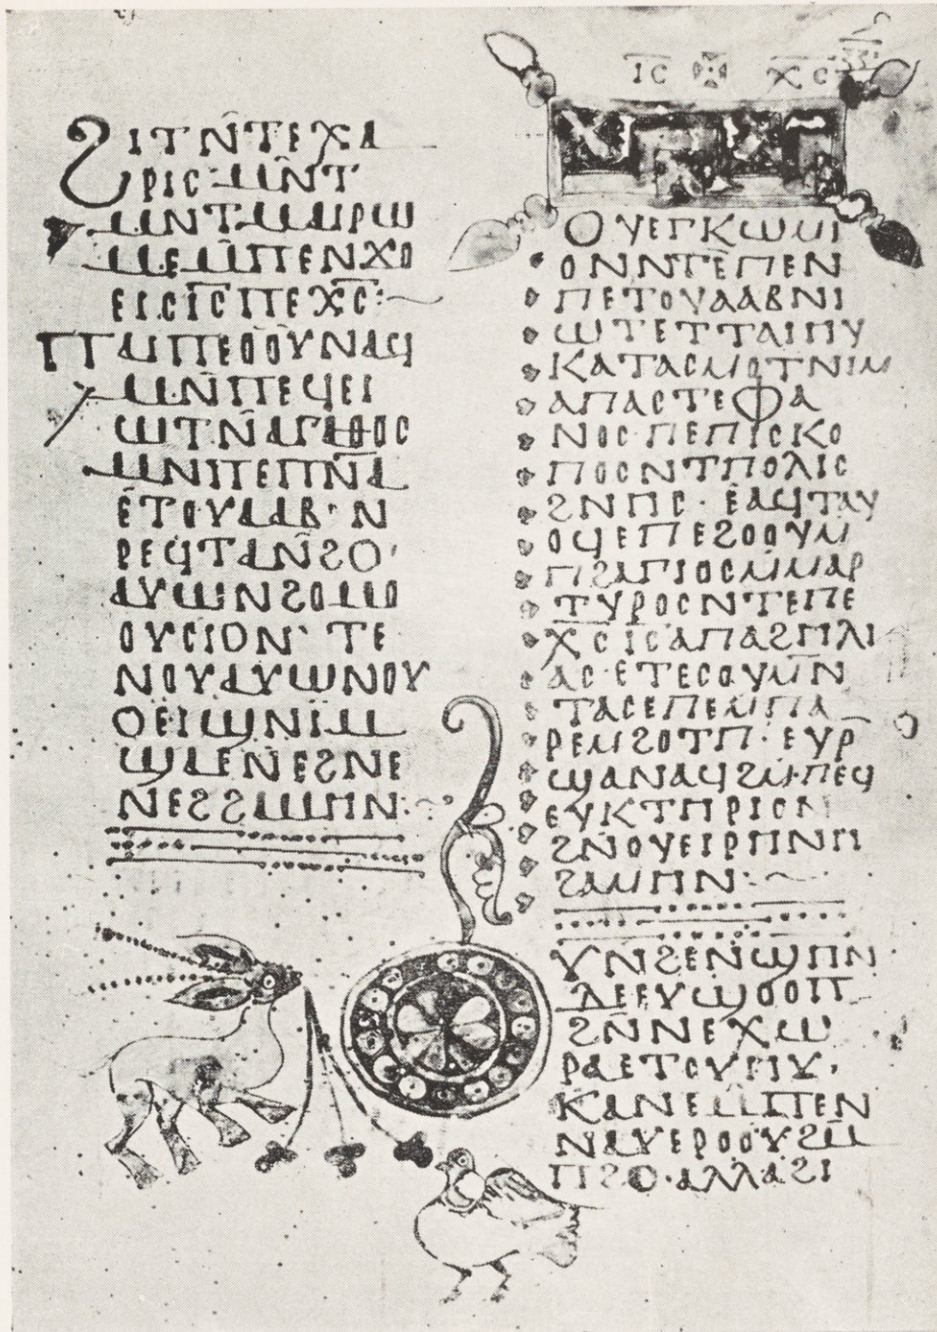 ϨⲒⲦⲚ̄ⲦⲈⲬⲀ
ⲢⲒⲤ ⲘⲚ̄Ⲧ
ⲘⲚⲦⲘⲀⲒⲢⲰ
ⲘⲈⲘⲠⲈⲚϪⲞ
ⲈⲒⲤⲒ̄Ⲥ̄ⲠⲈⲬ̄Ⲥ̄:
ⲠⲀⲒⲠⲈⲞⲞⲨⲚⲀϤ
ⲘⲚ̄ⲠⲈϤⲈⲒ
ⲰⲦ·ⲚⲀⲄⲀⲐⲞⲤ
ⲘⲚⲠⲈⲠ̄Ⲛ̄Ⲁ̄
ⲈⲦⲞⲨⲀⲀⲂ·Ⲛ
ⲢⲈϤⲦⲀⲚ̄ϨⲞ·
ⲀⲨⲰⲚϨⲞⲘⲞ
ⲞⲨⲤⲒⲞⲚ· ⲦⲈ
ⲚⲞⲨⲀⲨⲰⲚⲞⲨ
ⲞⲈⲒϢⲚⲒⲘ
ϢⲀⲈⲚⲈϨⲚⲈ
ⲚⲈϨϨⲀⲘⲎⲚ:
Ⲓ̄Ⲥ̄ Ⲭ̄Ⲥ̄
ⲞⲨⲈⲄⲔⲰⲘⲒ
ⲞⲚⲚⲦⲈⲠⲈⲚ
ⲠⲈⲦⲞⲨⲀⲀⲂⲚⲒ
ⲰⲦⲈⲦⲦⲀⲒⲎⲨ
ⲔⲀⲦⲀⲤⲘⲞⲦⲚⲒⲘ
ⲀⲠⲀⲤⲦⲈⲪⲀ
ⲚⲞⲤ·ⲠⲈⲠⲒⲤⲔⲞ
ⲠⲞⲤⲚⲦⲠⲞⲖⲒⲤ
ϨⲚⲎⲤ·ⲈⲀϤⲦⲀⲨ
ⲞϤⲈⲠⲈϨⲞⲞⲨⲘ
ⲠϨⲀⲄⲒⲞⲤⲘⲘⲀⲢ
ⲦⲨⲢⲞⲤⲚⲦⲈⲠⲈ
Ⲭ̄Ⲥ̄Ⲓ̄Ⲥ̄ⲀⲠⲀϨⲎⲖⲒ
ⲀⲤ·ⲈⲦⲈⲤⲞⲨⲘⲚ̄
ⲦⲀⲤⲈⲠⲈⲘⲠⲀ
ⲢⲈⲘϨⲞⲦⲠ·ⲈⲨⲢ̄
ϢⲀⲚⲀϤϨⲘ·ⲠⲈϤ
ⲈⲨⲔⲦⲎⲢⲒⲞⲚ
ϨⲚⲞⲨⲈⲒⲢⲎⲚⲎ
ϨⲀⲘⲎⲚ:
ⲨⲚϨⲈⲚϢⲎⲚ
ⲆⲈⲈⲨϢⲞⲞⲠ
ϨⲚ̄ⲚⲈⲬⲰ
ⲢⲀⲈⲦⲞⲨⲎⲨ·
ⲔⲀⲚⲈⲘⲠⲈⲚ
ⲚⲀⲨⲈⲢⲞⲞⲨϨⲘ
ⲠϨⲞ·ⲀⲖⲖⲀϨⲒ